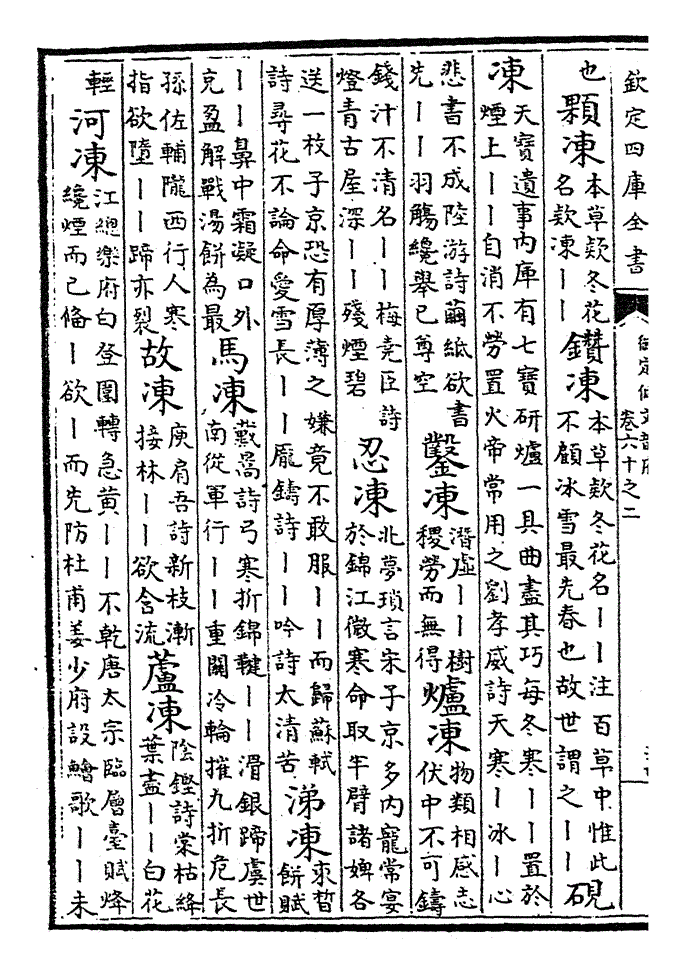 欽定四庫全書
御定佩文韻府
卷六十之二
也
顆凍
本草款冬花
名款凍丨丨
鑽凍
本草款冬花名丨丨注百草中惟此
不顧冰雪最先春也故世謂之丨丨
硯
凍
天寶遺事内庫有七寶研爐一具曲盡其巧每冬寒丨丨置於
煙上丨丨自消不勞置火帝常用之劉孝威詩天寒丨冰丨心
悲書不成陸游詩繭紙欲書
先丨丨羽觴纔舉已尊空
鑿凍
潛虚丨丨樹
稷勞而無得
爐凍
物類相感志
伏中不可鑄
錢汁不清名丨丨梅堯臣詩
燈青古屋深丨丨殘煙碧
忍凍
北夢瑣言宋子京多内寵常宴
於錦江微寒命取半臂諸婢各
送一枝子京恐有厚薄之嫌竟不敢服丨丨而歸蘇軾
詩尋花不論命愛雪長丨丨龎鑄詩丨丨吟詩太清苦
涕凍
束晳
餅賦
丨丨鼻中霜凝口外
充盈解戰湯餅為最
馬凍
戴暠詩弓寒折錦鞬丨丨滑銀蹄虞世
南從軍行丨丨重關冷輪摧九折危長
孫佐輔隴西行人寒
指欲墮丨丨蹄亦裂
故凍
庾肩吾詩新枝漸
接林丨丨欲含流
蘆凍
陰鏗詩棠枯絳
葉盡丨丨白花
輕
河凍
江總樂府白登圍轉急黄丨丨不乾唐太宗臨層臺賦烽
纔煙而已偹丨欲丨而先防杜甫姜少府設鱠歌丨丨未